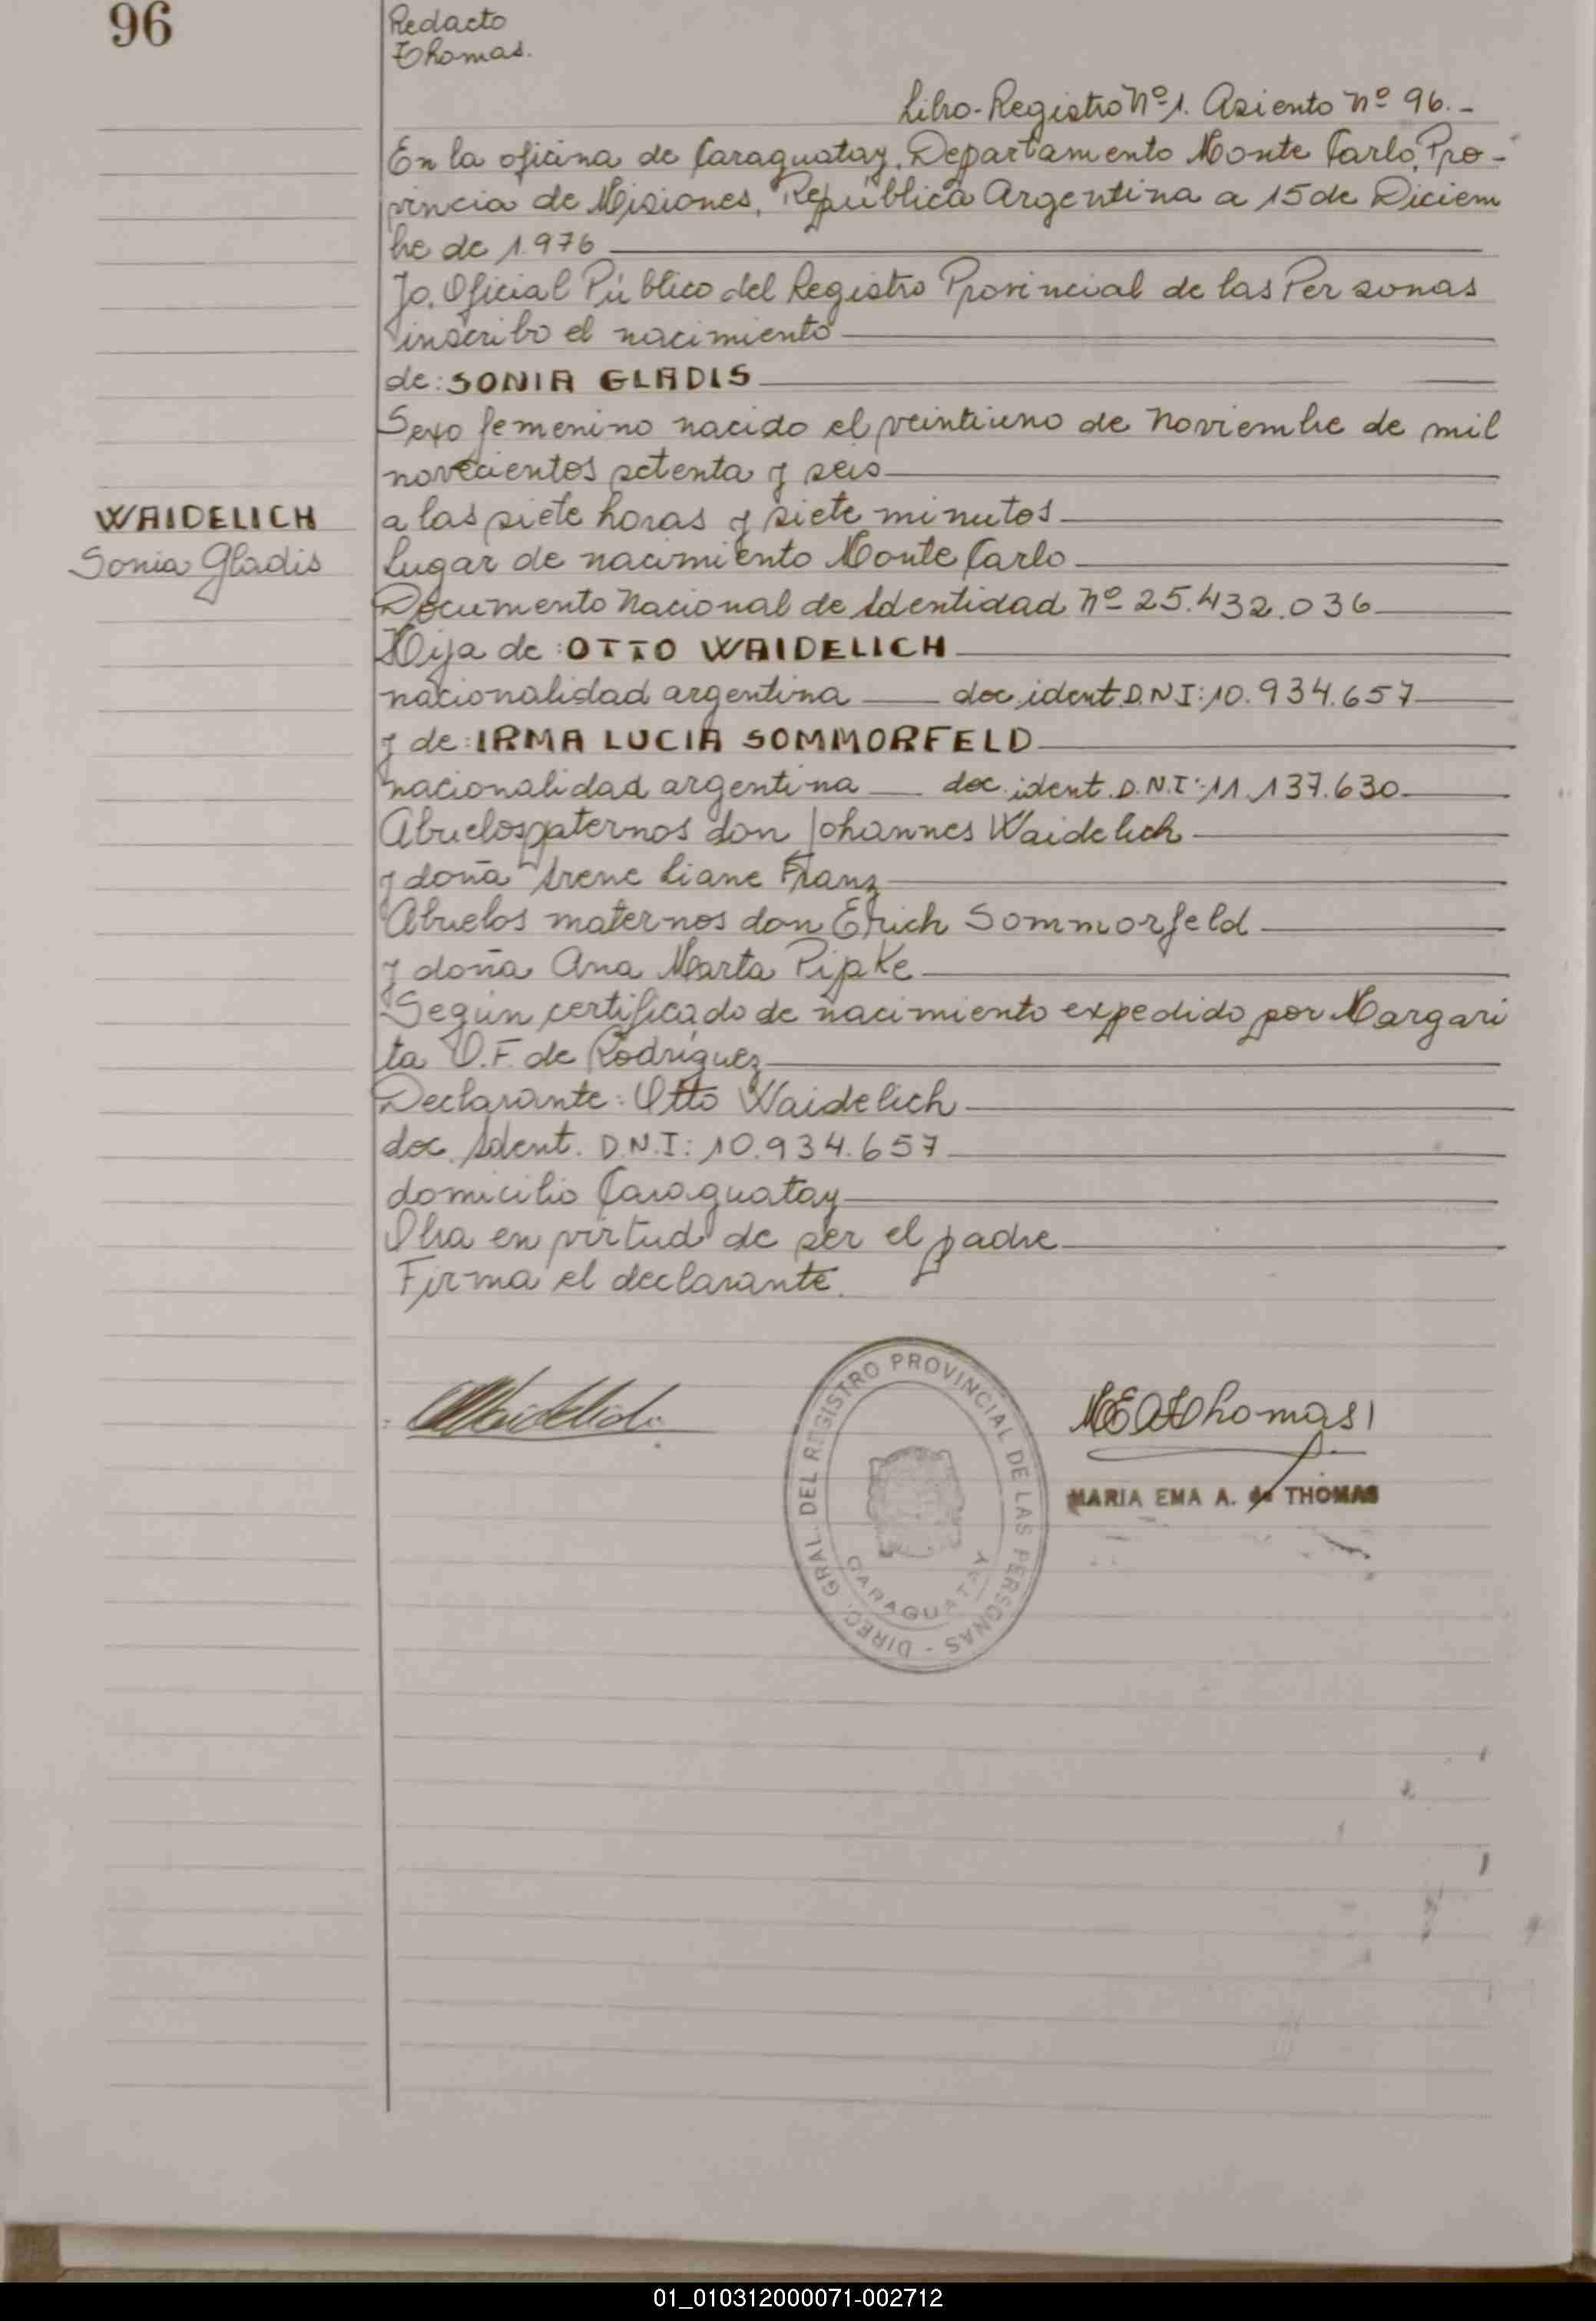 96
Redacto
Thomas.
Libro-Registro Nº 1. Asiento Nº 96.-
En la oficina de Caraguatay, Departamento Monte Carlo, Pro-
vincia de Misiones, República Argentina a 15 de Diciem
bre de 1.976
Yo, Oficial Público del Registro Provincial de las Personas
inscribo el nacimiento
de: SONIA GLADIS
Sexo femenino nacido el veintiuno de Noviembre de mil
novecientos setenta y seis
WAIDELICH
Sonia Gladis
a las siete horas y siete minutos
Lugar de nacimiento Monte Carlo
Documento Nacional de Identidad Nº 25.432.036
Hija de: OTTO WAIDELICH
nacionalidad argentina doc. ident. D.N.I: 10.934.657
y de: IRMA LUCIA SOMMORFELD
nacionalidad argentina doc. ident. D.N.I: 11.137.630
Abuelos paternos don Johannes Waidelich
y doña Irene Liane Franz
Abuelos maternos don Erich Sommorfeld
y doña Ana Marta Pipke
Según certificado de nacimiento expedido por Margari
ta O.F. de Rodríguez
Declarante: Otto Waidelich
doc. Ident. D.N.I: 10.934.657
domicilio Caraguatay
Obra en virtud de ser el padre
Firma el declarante.
Waidelich
DIREC. GRAL. DEL REGISTRO PROVINCIAL DE LAS PERSONAS -
CARAGUATAY
MEAThomas
MARIA EMA A. de THOMAS
01_010312000071-002712